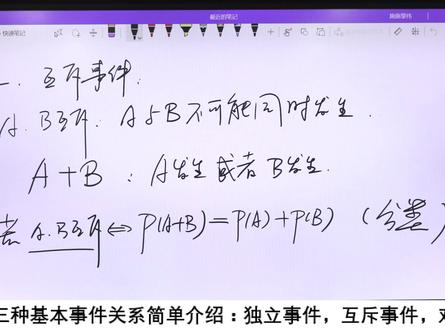 最近的笔记
快速笔记
一. 互斥事件.
A. B互斥. A与B不可能同时发生.
A+B : A发生或者B发生.
若 A.B互斥 ⇔ P(A+B)=P(A)+P(B) (分类)
三种基本事件关系简单介绍：独立事件，互斥事件，对